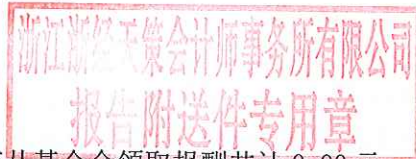 浙江浙经天策会计师事务所有限公司
报告附送件专用章
基金会领取报酬共计 0.00 元